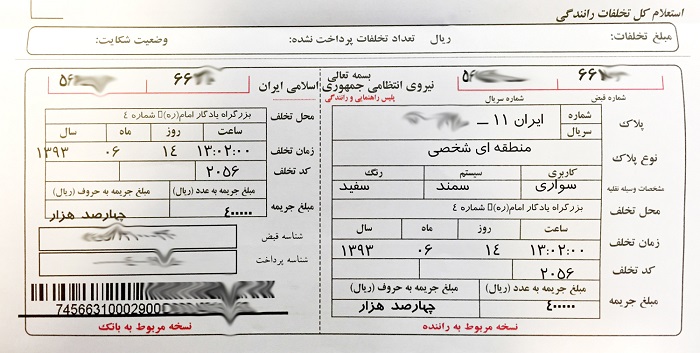 استعلام کل تخلفات رانندگی
مبلغ تخلفات: ریال تعداد تخلفات پرداخت نشده: وضعیت شکایت:
بسمه تعالی
نیروی انتظامی جمهوری اسلامی ایران
پلیس راهنمایی و رانندگی
۶۶
شماره قبض
۵۶
شماره سریال
پلاک
شماره سریال
ایران ۱۱ ــ
نوع پلاک
منطقه ای شخصی
مشخصات وسیله نقلیه
کاربری سیستم رنگ
سواری سمند سفید
محل تخلف
بزرگراه یادگار امام(ره)▯ شماره ٤
زمان تخلف
ساعت روز ماه سال
۱۳:۰۲:۰۰ ۱۴ ۰۶ ۱۳۹۳
کد تخلف
۲۰۵۶
مبلغ جریمه
مبلغ جریمه به عدد (ریال) مبلغ جریمه به حروف (ریال)
۴۰۰۰۰۰ چهارصد هزار
نسخه مربوط به راننده
۶۶
۵۶
محل تخلف
بزرگراه یادگار امام(ره)▯ شماره ٤
زمان تخلف
ساعت روز ماه سال
۱۳:۰۲:۰۰ ۱۴ ۰۶ ۱۳۹۳
کد تخلف
۲۰۵۶
مبلغ جریمه
مبلغ جریمه به عدد (ریال) مبلغ جریمه به حروف (ریال)
۴۰۰۰۰۰ چهارصد هزار
شناسه قبض
شناسه پرداخت
74566310002900
نسخه مربوط به بانک